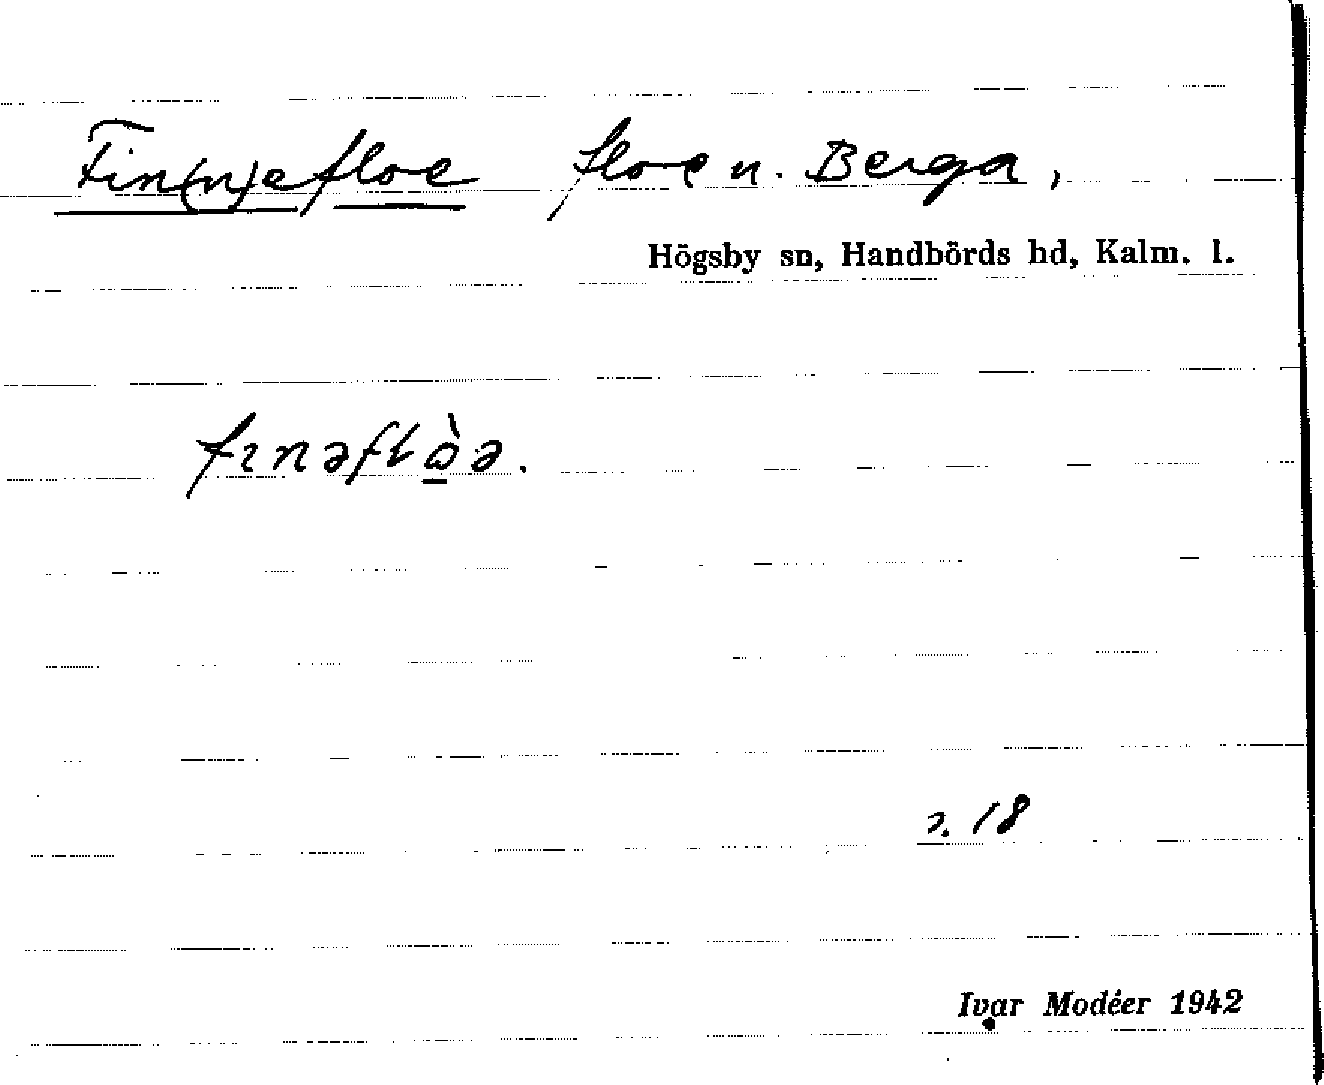 Fin(n)efloe floe n. Berga,
Högsby sn, Handbörds hd, Kalm. l.
fɪnəflὼ̱ə.
s. 18
Ivar Modéer 1942